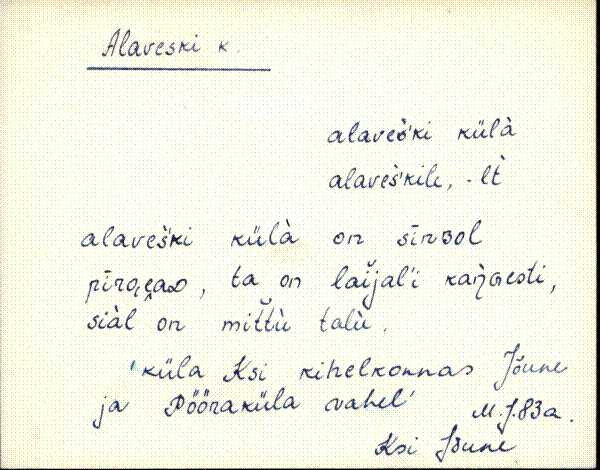 Alaveski k.
alaveš'ki külà
alaveš'kile, -lt̀
alaveški külà on sīnᴣol
ta on laijal'i
siàl on mittù talù.
'küla Ksi kihelkonnas Jõune
ja Pööraküla vahel'
M.J.83a.
Ksi Jõune